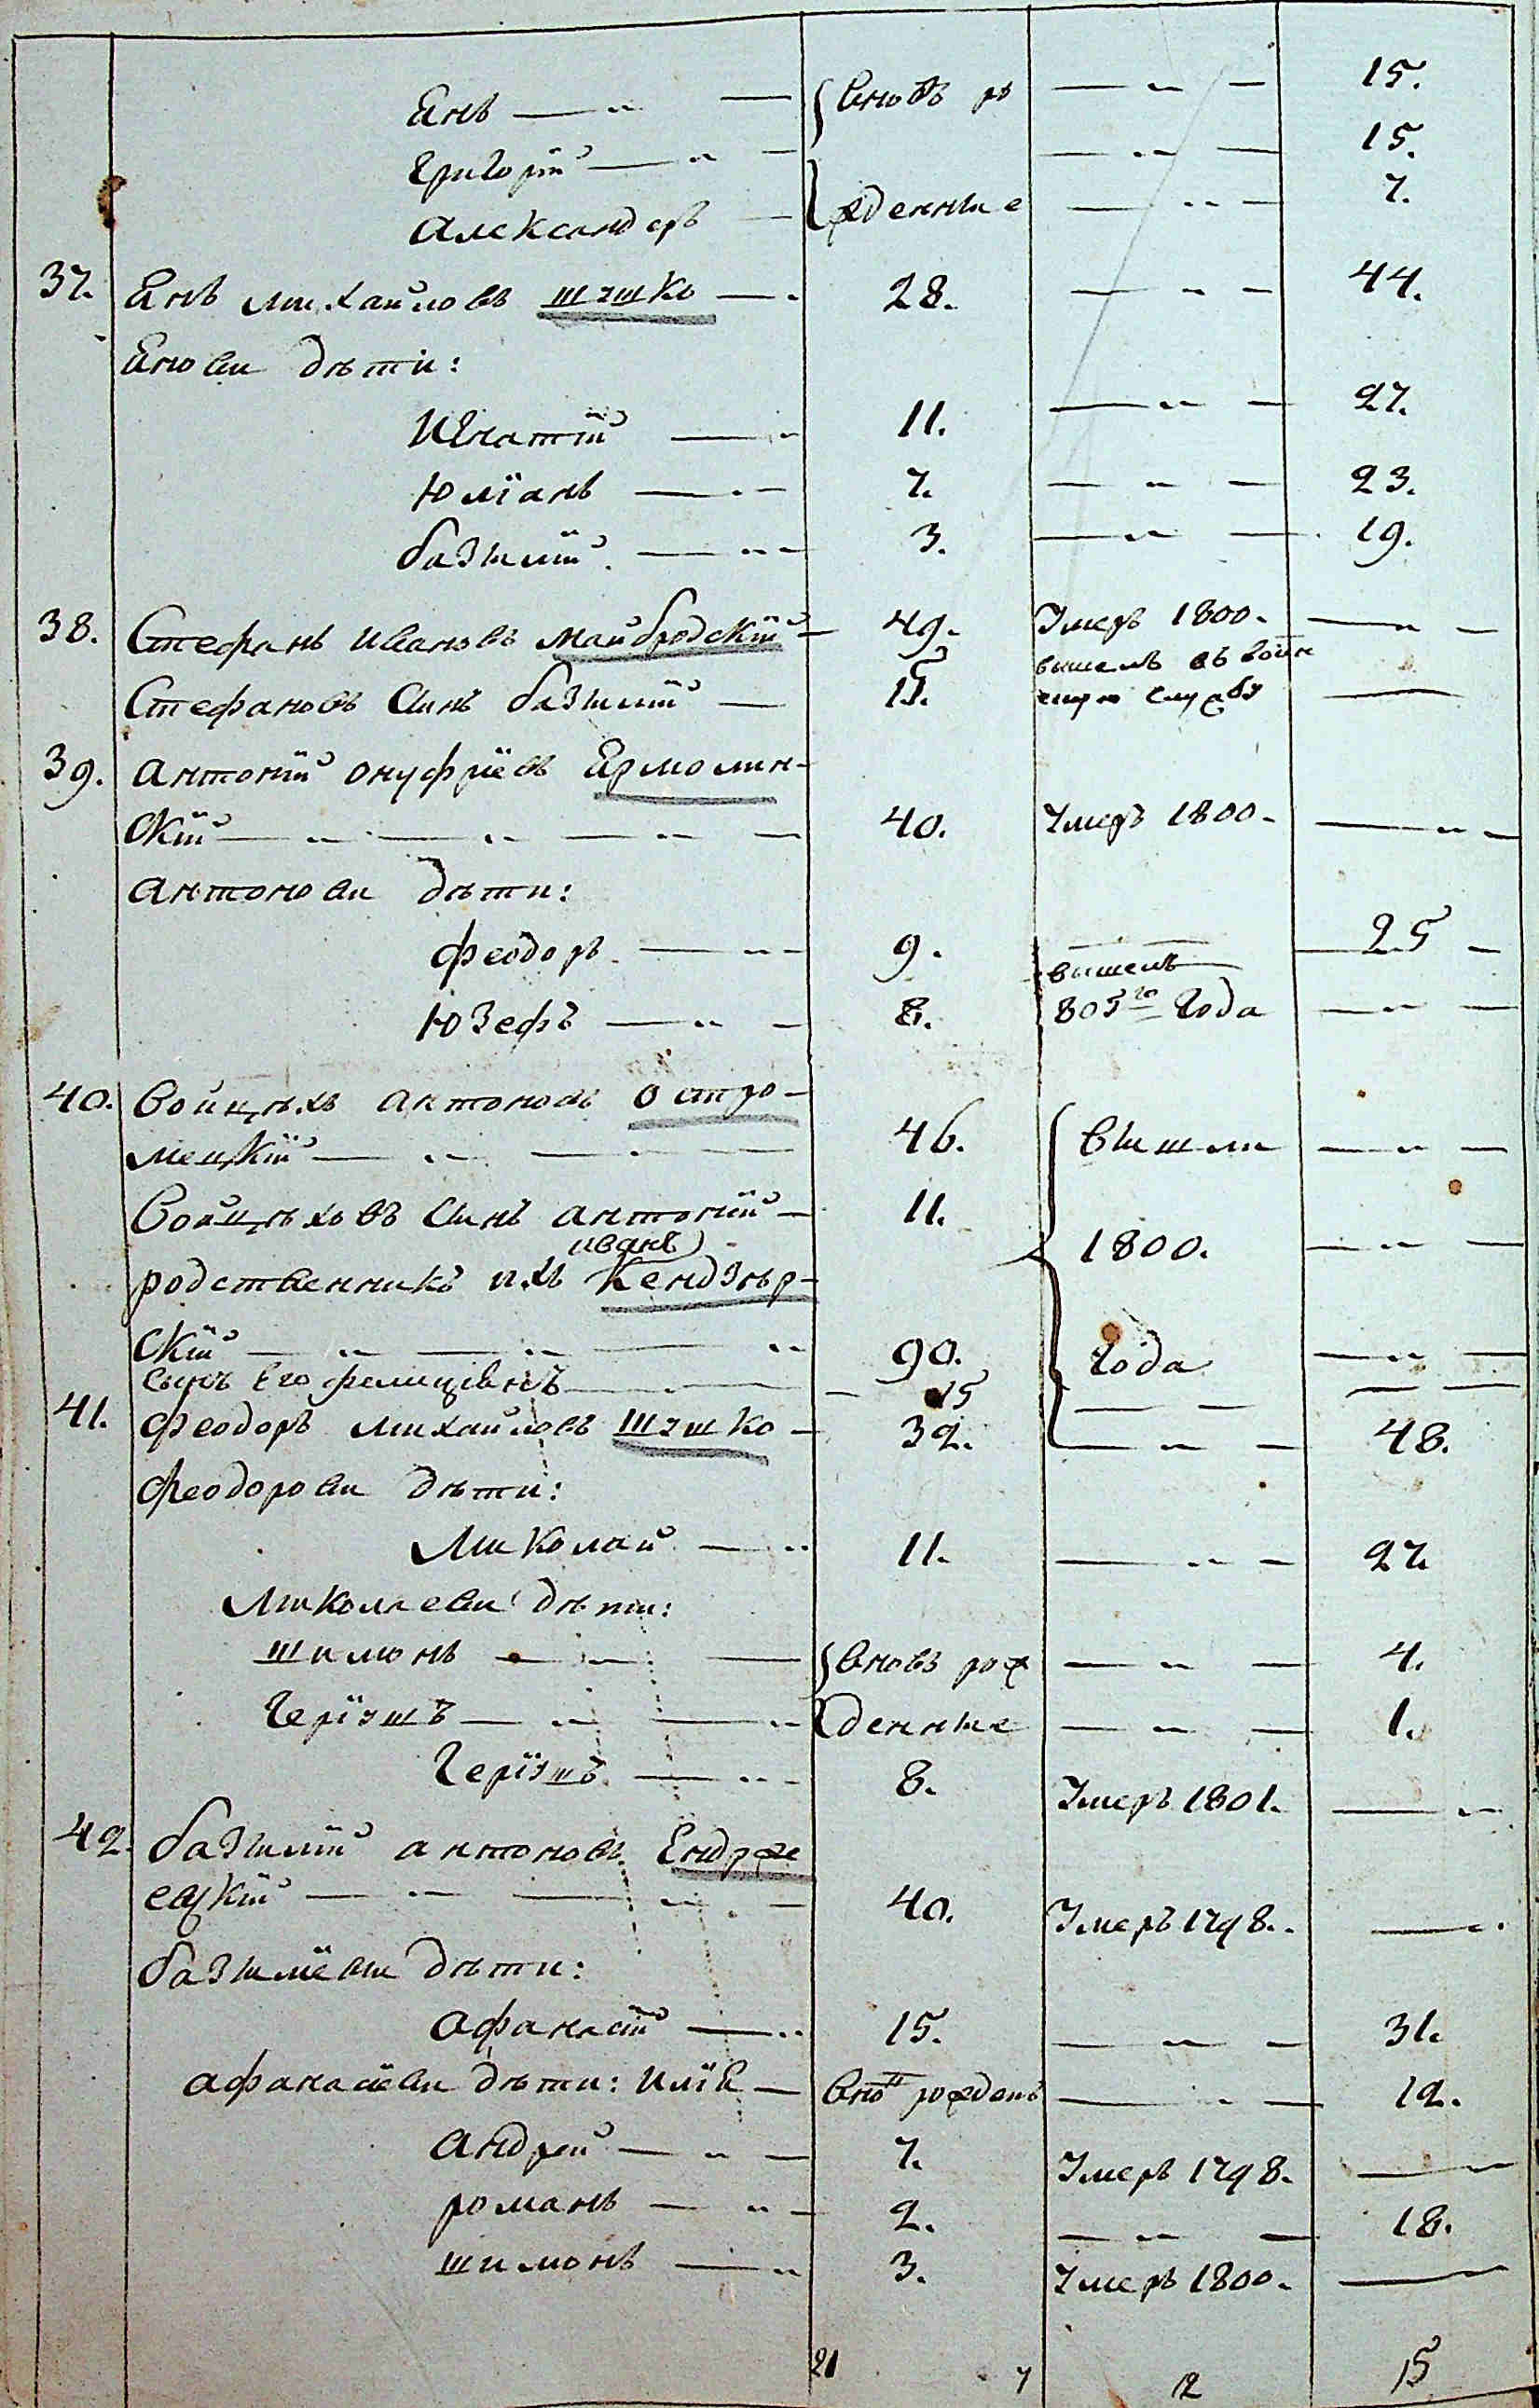 Янъ — „ — Вновь ро — „ — 15.
Григорій — „ — — „ — 15.
Александеръ — жденные — „ — 7.
37. Янъ Михайловъ Шушко — 28. — „ — 44.
Яновы дѣти:
Игнатій — „ 11. — „ — 27.
Юліанъ — „ — 7. — „ — 23.
Базылій — „ — 3. — „ — 19.
38. Стефанъ Ивановъ Майбродскій — 49. Умеръ 1800. — „ —
вышелъ въ воин
Стефановъ Сынъ Базылій — 15. скую службу —
39. Антоній Онуфріевъ Ярмолин-
скій — „ — „ — „ — 40. Умеръ 1800. — „ —
Антоновы дѣти:
Феодоръ — „ — 9. — — 25 —
вышелъ
Юзефъ — „ — 8. 805го года — „ —
40. Войцѣхъ Антоновъ Остро-
мецкій — „ — „ — 46. Вышли — „ —
Войцѣховъ Сынъ Антоній — 11.
Иванъ 1800. — „ —
родственникъ ихъ Кендзѣр-
скій — „ — „ — „ 90. года — „ —
Сынъ Его Фелиціянъ — 15 — —
41. Феодоръ Михайловъ Шушко — 32. — „ — 48.
Феодоровы дѣти:
Миколай — „ 11. — „ — 27.
Миколаевы дѣти:
Шимонъ — „ — Вновь рож — „ — 4.
Геріушъ — „ — „ денные — „ — 1.
Геріушъ — „ — 8. Умеръ 1801. — „
42. Базылій Антоновъ Ендрже
евскій — „ — „ — 40. Умеръ 1798. —
Базыліевы дѣти:
Афанасій — „ 15. — „ — 31.
Афанасіевы дѣти: Илія — Вновь рожденъ — „ — 12.
Андрей — „ — 7. Умеръ 1798. —
Романъ — „ — 2. — „ — 18.
Шимонъ — „ 3. Умеръ 1800. —
21 7 12 15